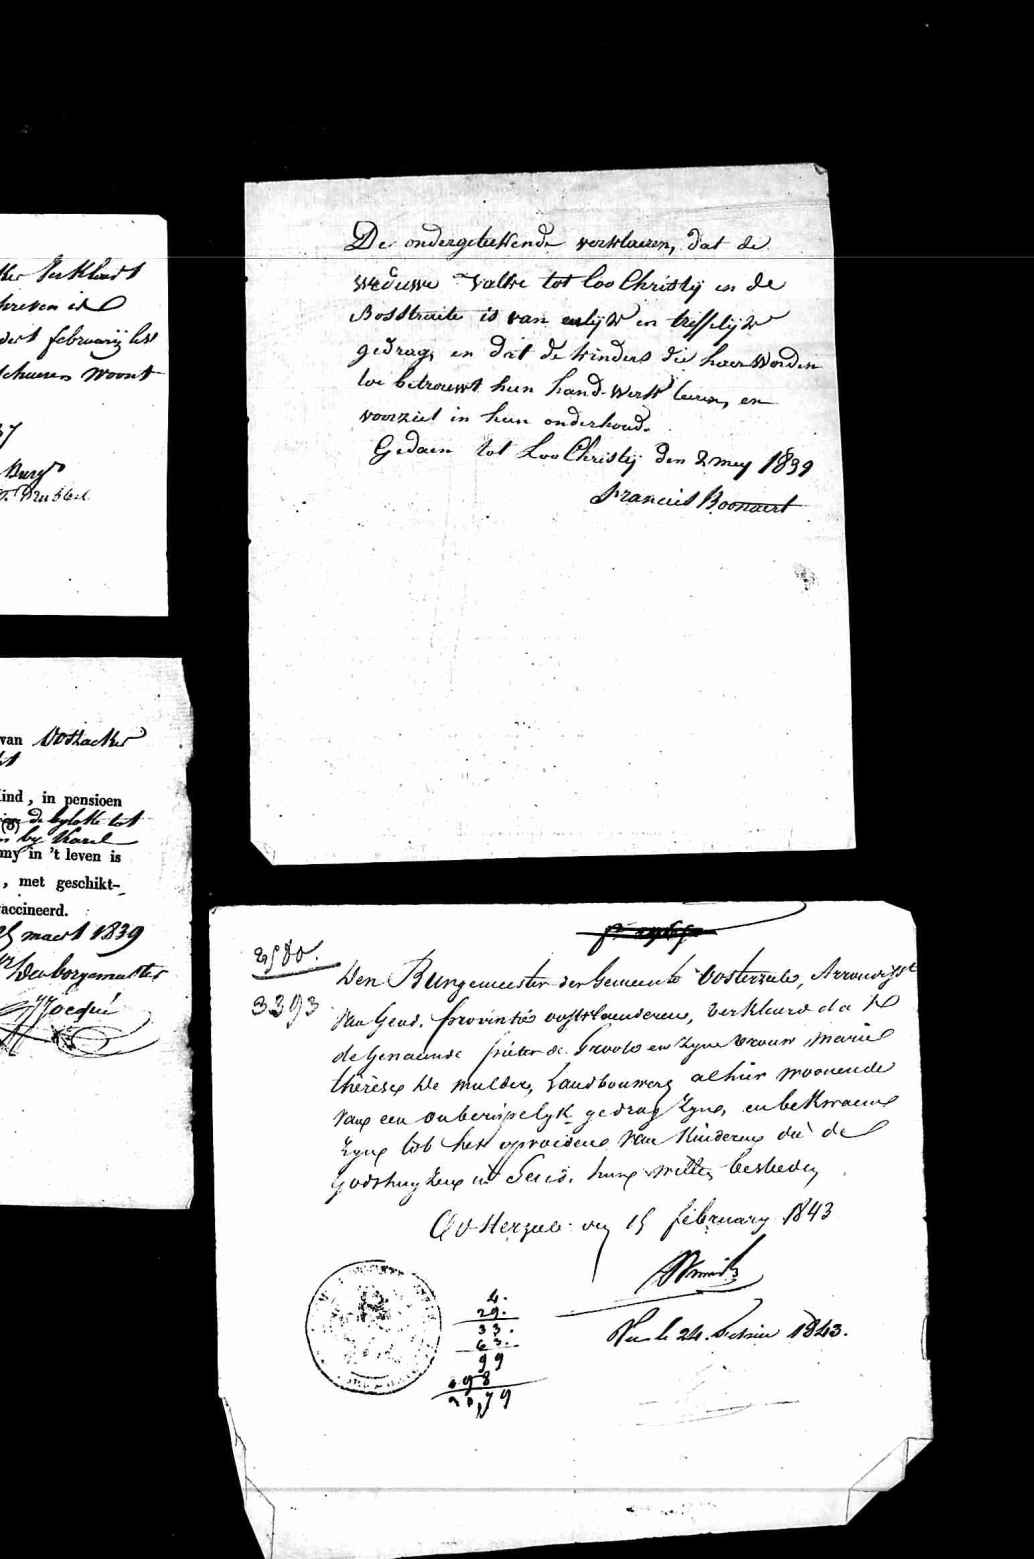 ker Eeklaert
hreven is
dert februarij les
schueren woont
37
Burg
van Oostacker
kind, in pensioen
(3) de byloke tot
by Karel
my in 't leven is
, met geschikt-
accineerd.
25 maert 1839
den borgemeester
De ondergeteekende verklaeren, dat de
weduwe Valke tot Loo Christij in de
Bosstraite is van eerlijk en treffelijk
gedrag, en dat de kinders die haer worden
toe betrouwt hun hand-werk leeren, en
voorziet in hun onderhoud.
Gedaen tot Loo Christij den 2 mey 1839
Francies Boonaert
2580.
3393
Den Burgemeester der Gemeente Oosterzeele, Arrondisst
van Gend, provintie oostvlaenderen, verklaerd da t
de genaemde pieter de Groote en zyne vrouw marie
thérèse de mulder, Landbouwers alhier woonende
van een onberispelyk gedrag zyn, en bekwaem
zyn tot het opvoeden van kinderen die de
godshuyzen in Gend, hun willen besteden
Oosterzeele den 15 february 1843
Vu le 24 1843.
4.
29.
33.
63.
99
498
20,79